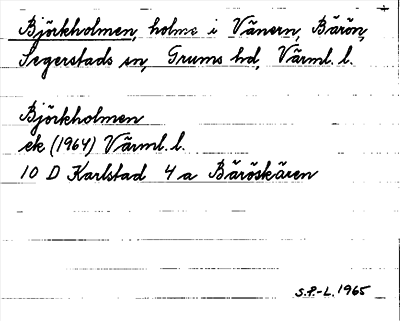 Björkholmen, holme i Vänern, Bärön,
Segerstads sn, Grums hd, Värml. l.
Björkholmen
ek (1964) Värml. l.
10 D Karlstad 4 a Bäröskären
S.P.-L. 1965